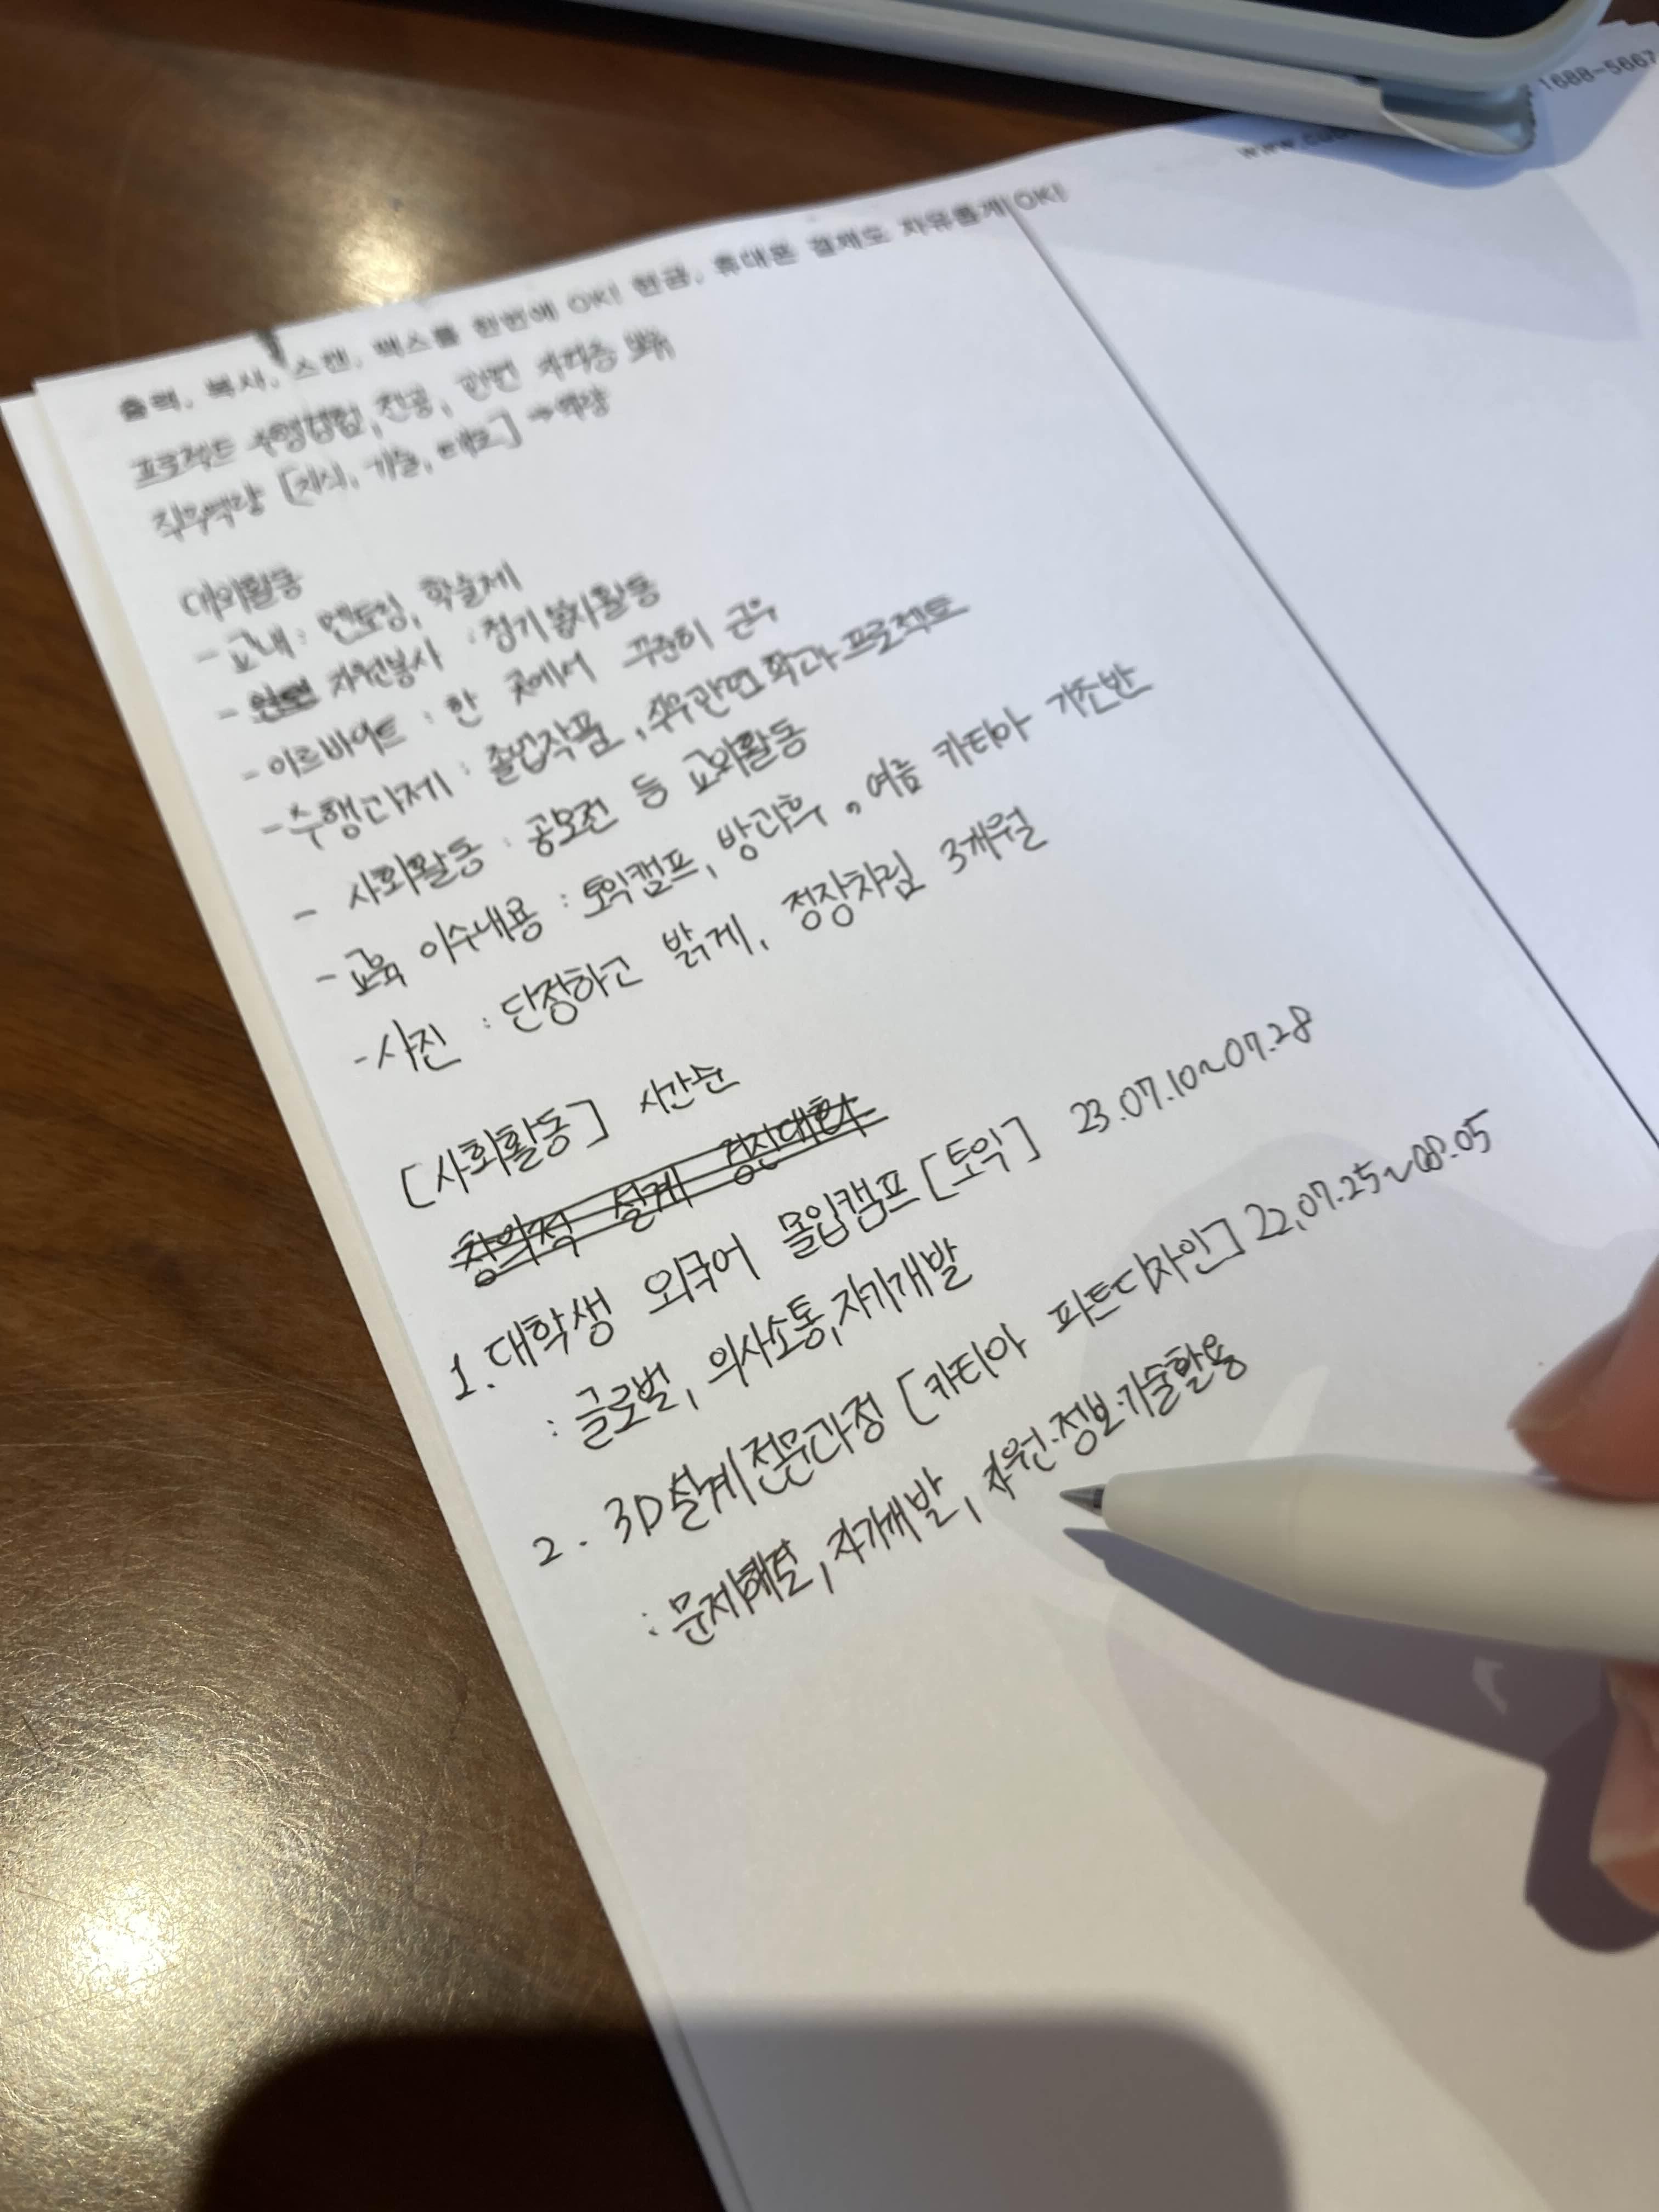 1688-5667
www.
출력, 복사, 스캔, 팩스를 한번에 OK! 현금, 휴대폰 결제도 자유롭게 OK!
프로젝트 수행경험, 전공, 관련 자격증
직무역량 [지식, 기술, 태도] → 역량
대외활동
- 교내 : 멘토링, 학술제
- 자원봉사 : 정기봉사활동
- 아르바이트 : 한 곳에서 꾸준히 근무
- 수행과제 : 졸업작품, 직무관련 학과 프로젝트
- 사회활동 : 공모전 등 교외활동
- 교육 이수내용 : 토익캠프, 방과후, 여름 카티아 기초반
- 사진 : 단정하고 밝게, 정장차림 3개월
[사회활동] 시간순
창의적 설계 경진대회
1. 대학생 외국어 몰입캠프 [토익] 23.07.10~07.28
: 글로벌, 의사소통, 자기개발
2. 3D설계전문과정 [카티아 파트디자인] 22.07.25~08.05
: 문제해결, 자기개발, 자원·정보·기술활용